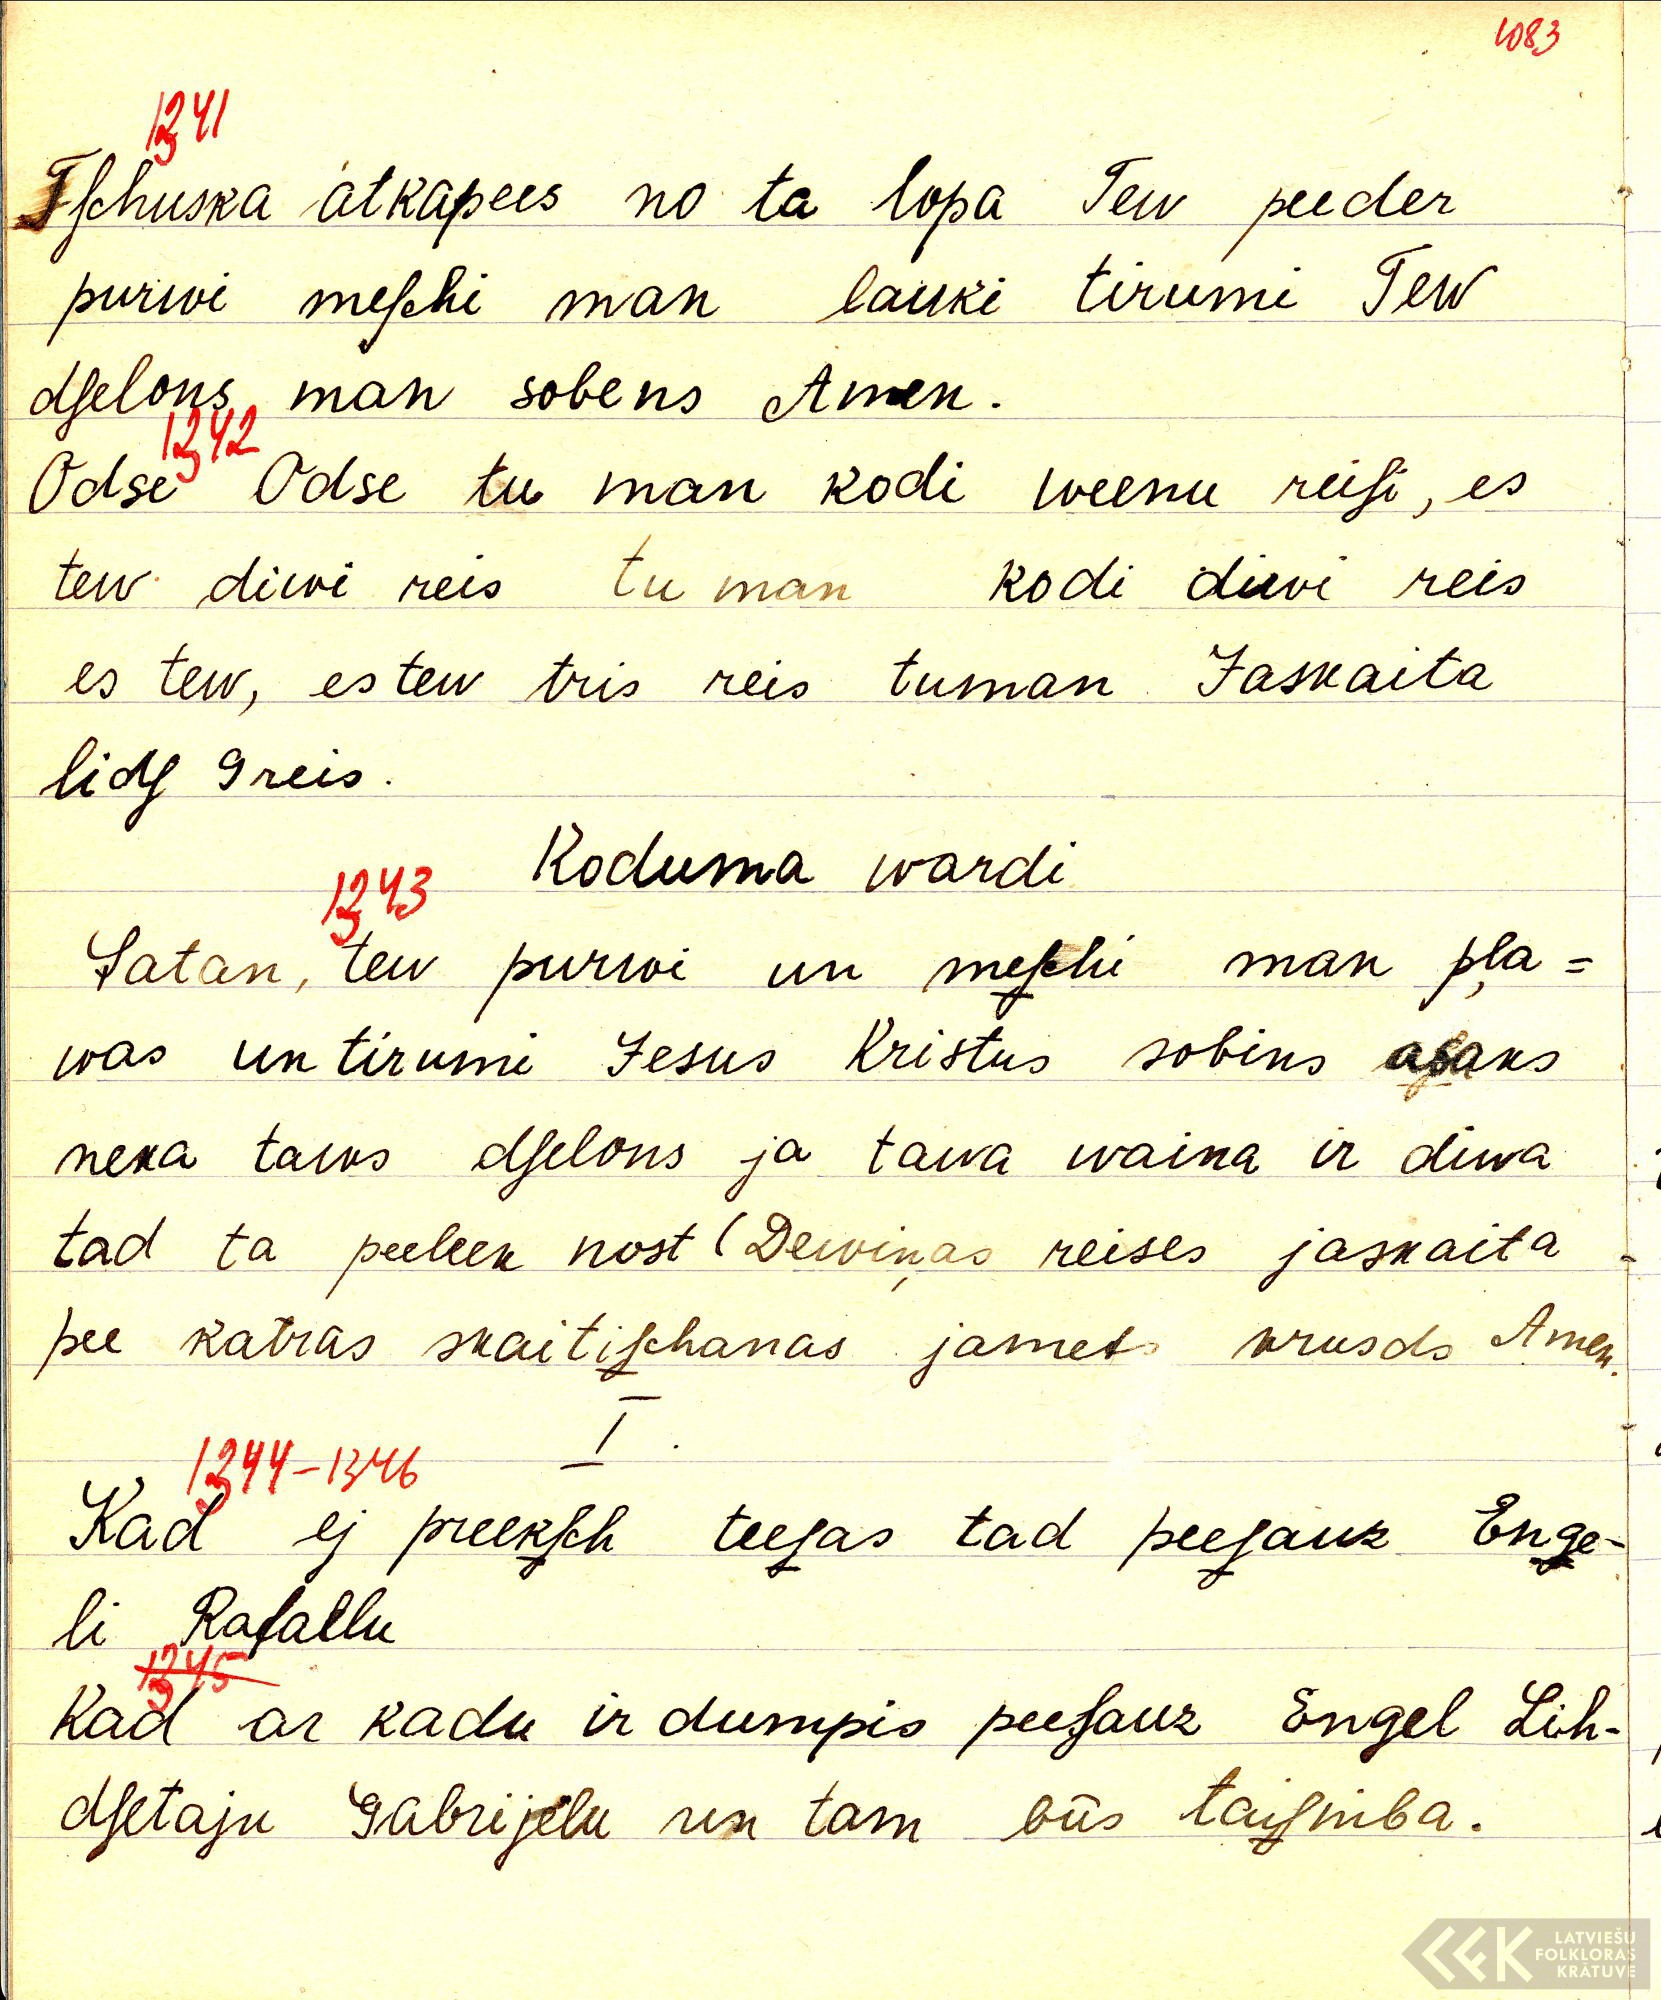 1083
1341
Tſchuska atkapees no ta lopa Tew peeder
purwi meſchi man lauki tirumi Tew
dſelons man sobens Amen.
1342
Odse Odse tu man kodi weenu reiſi, es
tew diwi reis tu man kodi diwi reis
es tew, es tew tris reis tuman Jaskaita
lidſ 9 reis.
Koduma wardi
1343
Satan, tew purwi un meſchi man pļa=
was un tirumi Jesus Kristus sobins aſaks
neka taws dſelons ja tawa waina ir diwa
tad ta peeleek nost (Dewiņas reises jaskaita
pee katras skaitiſchanas jamets krusds Amen.
I.
1344-1346
Kad ej preekſch teeſas tad peeſauz Enge-
li Rafaelu
1345
Kad ar kadu ir dumpis peeſauz Engel Lih-
dſetaju Gabrijelu un tam būs taiſniba.
LATVIEŠU
FOLKLORAS
KRĀTUVE